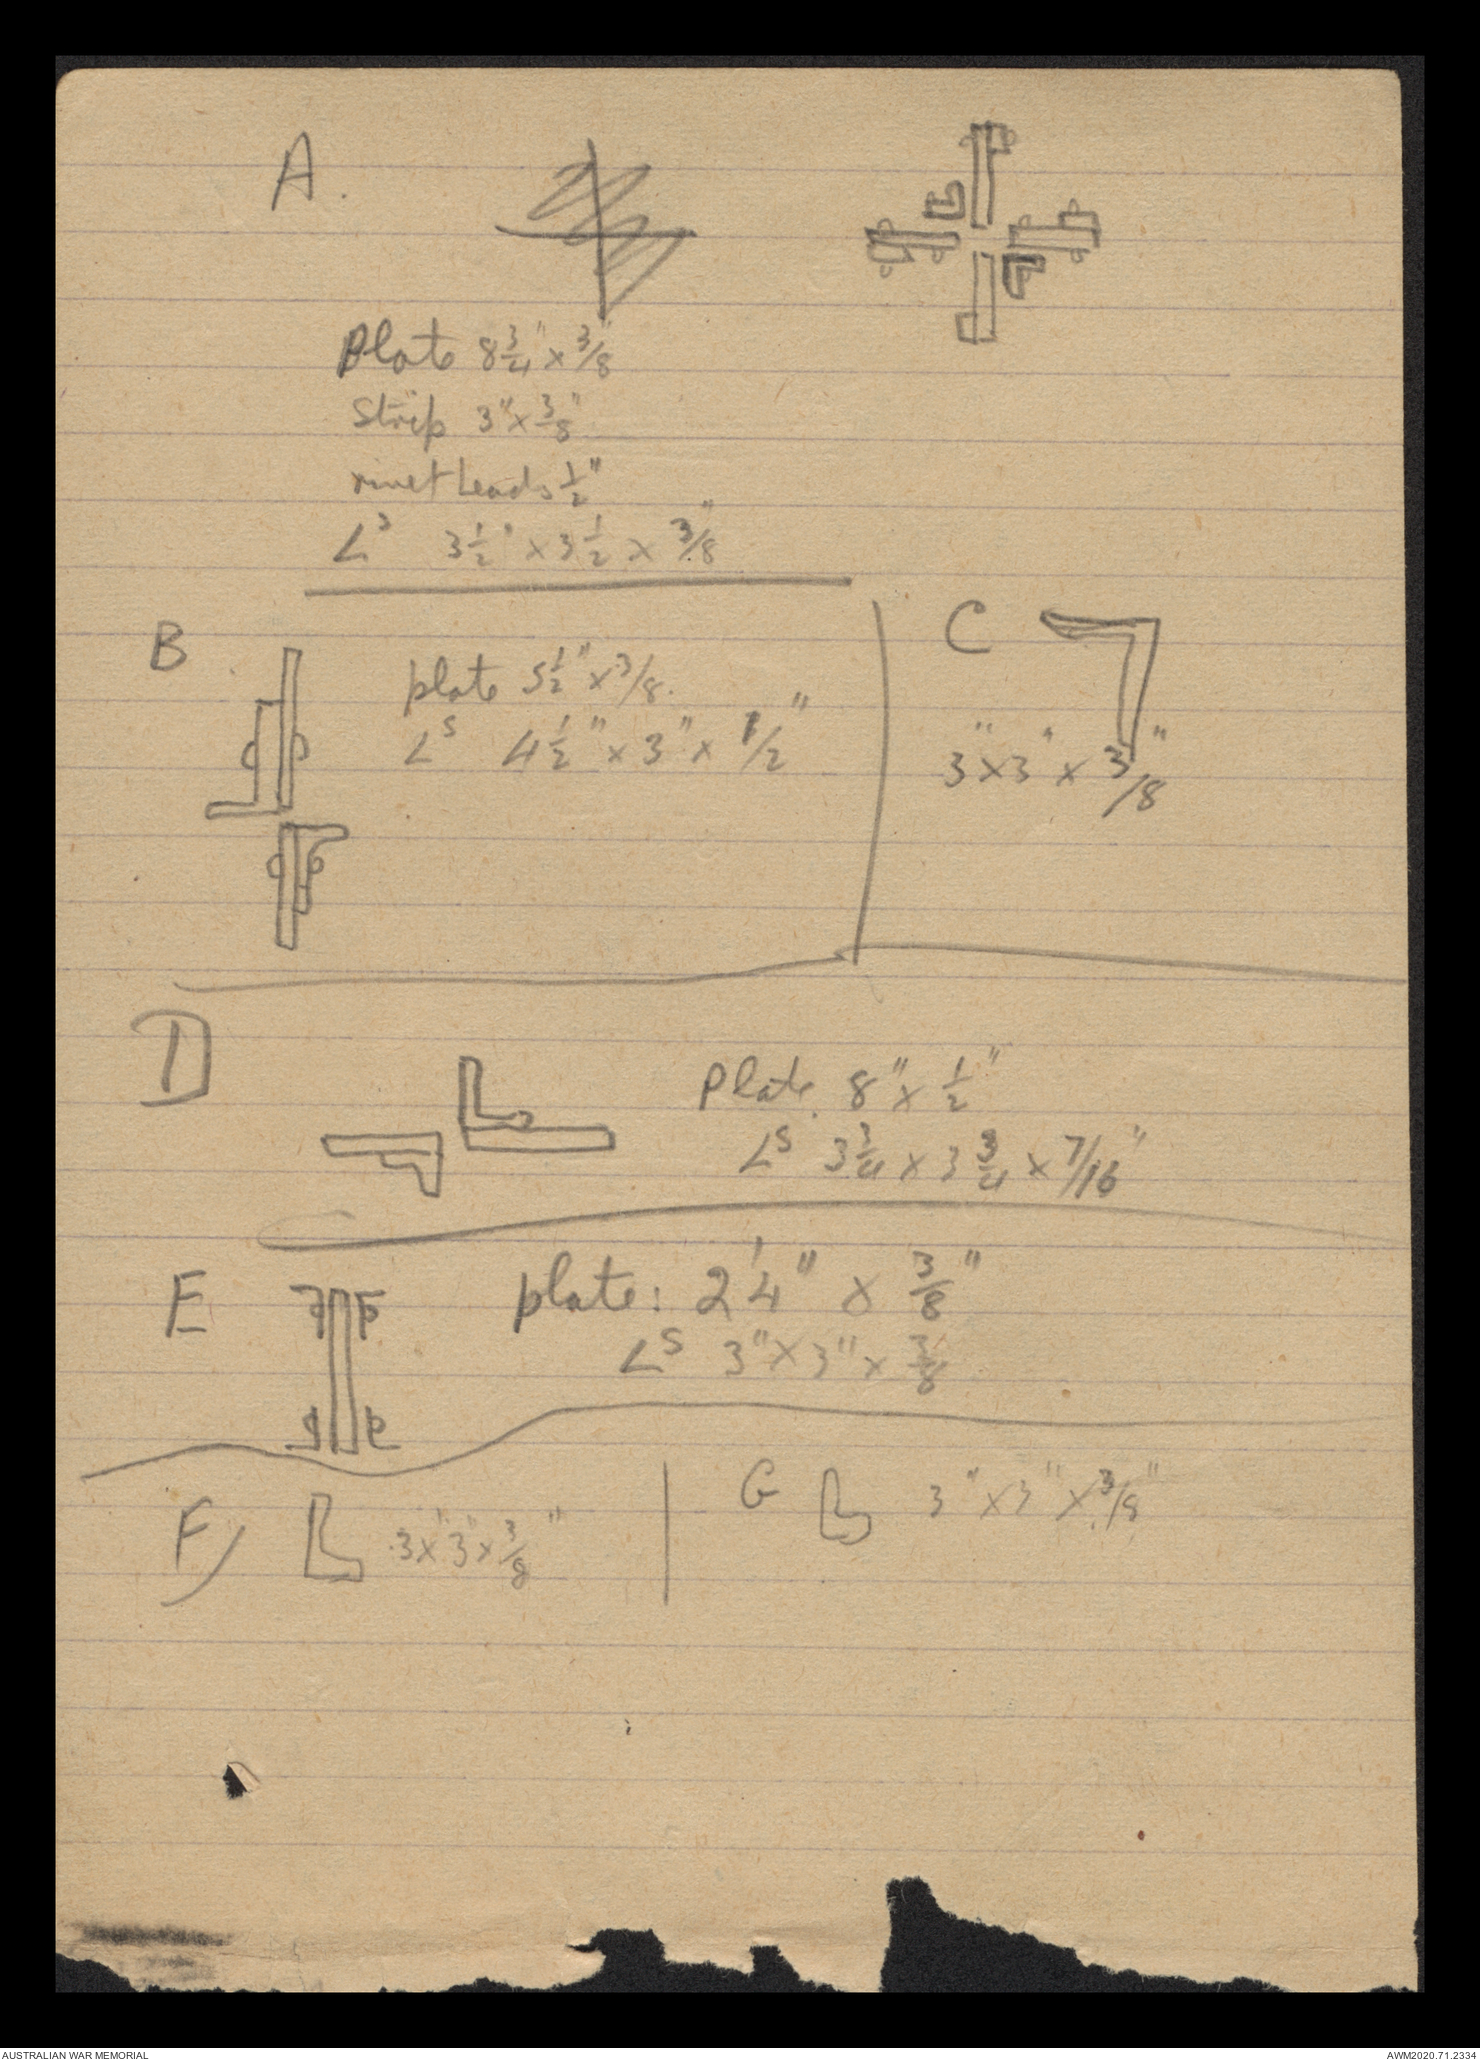 A.
Plate 8 3/4" x 3/8"
Strip 3" x 3/8"
rivet heads 1/2"
Ls 3 1/2" x 3 1/2 x 3/8"
B
plate 5 1/2" x 3/8.
Ls 4 1/2" x 3" x 1/2"
C
3" x 3" x 3/8"
D
Plate 8" x 1/2"
Ls 3 3/4 x 3 3/4 x 7/16"
E
plate: 2'4" x 3/8"
Ls 3" x 3" x 3/8
F
3" x 3" x 3/8"
G
3" x 3" x 3/8"
AUSTRALIAN WAR MEMORIAL
AWM2020.71.2334